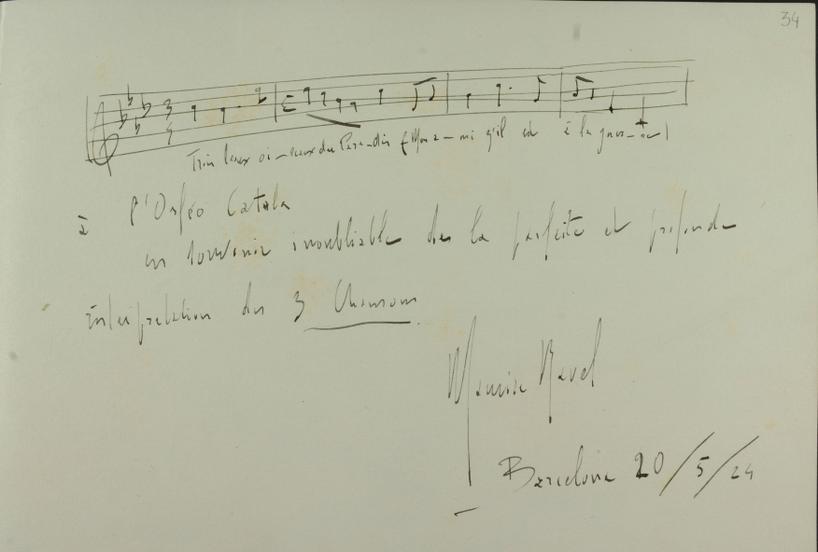 34
Trois beaux oiseaux du Paradis (Mon ami z'il est à la guerre)
à l'Orféo Catala
en souvenir inoubliable de la parfaite et profonde
interprétation des 3 Chansons
Maurice Ravel
Barcelone 20/5/24